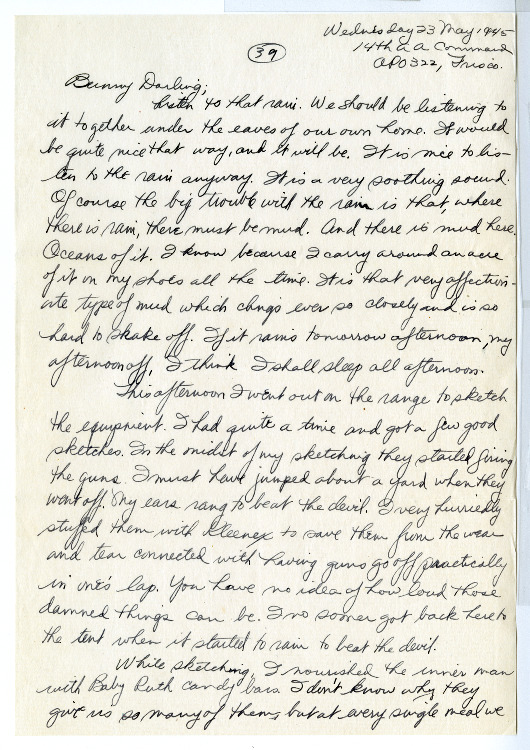 Wednesday 23 May 1945
39
14th A A Command
APO 322, Frisco.
Bunny Darling;
Listen to that rain. We should be listening to
it together under the eaves of our own home. It would
be quite nice that way, and it will be. It is nice to lis-
ten to the rain anyway. It is a very soothing sound.
Of course the big trouble with the rain is that, where
there is rain, there must be mud. And there is mud here.
Oceans of it. I know because I carry around an acre
of it on my shoes all the time. It is that very affection-
ate type of mud which clings ever so closely and is so
hard to shake off. If it rains tomorrow afternoon, my
afternoon off, I think I shall sleep all afternoon.
This afternoon I went out on the range to sketch
the equipment. I had quite a time and got a few good
sketches. In the midst of my sketching they started firing
the guns. I must have jumped about a yard when they
went off. My ears rang to beat the devil. I very hurriedly
stuffed them with Kleenex to save them from the wear
and tear connected with having guns go off practically
in one's lap. You have no idea of how loud those
damned things can be. I no sooner got back here to
the tent when it started to rain to beat the devil.
While sketching, I nourished the inner man
with Baby Ruth candy bars. I don't know why they
give us so many of them, but at every single meal we